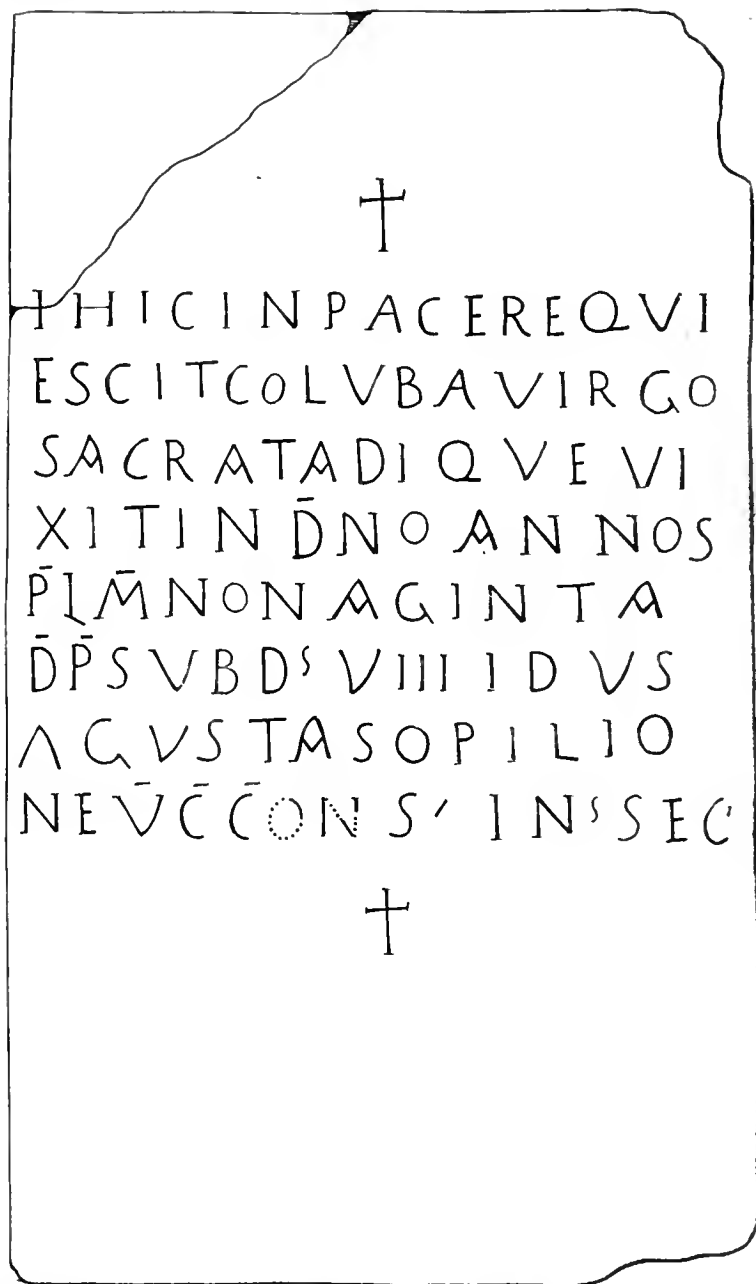 †
†HICINPACEREQUI
ESCITCOLVBAVIRGO
SACRATADIQVEVI
XITIND̄NOANNOS
P̄LM̄NONAGINTA
D̄P̄SVBDˢVIIIIDVS
AGVSTASOPILIO
NEV̄C̄C̄ONS′INˢSEC′
†